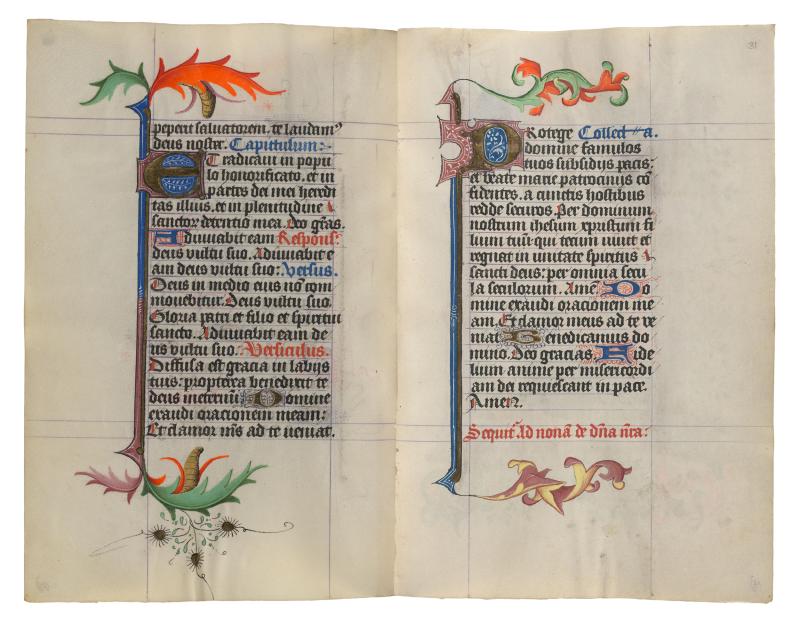 peperit salvatorem, te laudam⁹
deus noster. Capitulum:
Et radicavi in popu
lo honorificato. et in
partes dei mei heredi
tas illius. et in plenitudine
sanctor detentio mea. Deo grās.
Adiuvabit eam Respons:
deus vultu suo. Adiuvabit e
am deus vultu suo: Versus.
Deus in medio eius nō com
movebitur. Deus vultu suo.
Gloria patri et filio et spiritui
sancto. Adiuvabit eam de
us vultu suo. Versiculus.
Diffusa est gracia in labijs
tuis: propterea benedixit te
deus in eternū Domine
exaudi oracionem meam:
Et clamor m̄s ad te veniat.
31
Protege Collecta.
domine famulos
tuos subsidijs pacis:
et beate marie patrocinijs cō
fidentes. a cunctis hostibus
redde securos. Per dominum
nostrum ihesum xpristum fi
lium tuū qui tecum vivit et
regnat in unitate spiritus
sancti deus: per omnia secu
la seculorum. Amē. Do
mine exaudi oracionem me
am. Et clamor meus ad te ve
niat Benedicamus do
mino. Deo gracias Fide
lium anime per misericordi
am dei requiescant in pace.
Amen.
Sequit͛ Ad nonā de dn̄a nr̄a: